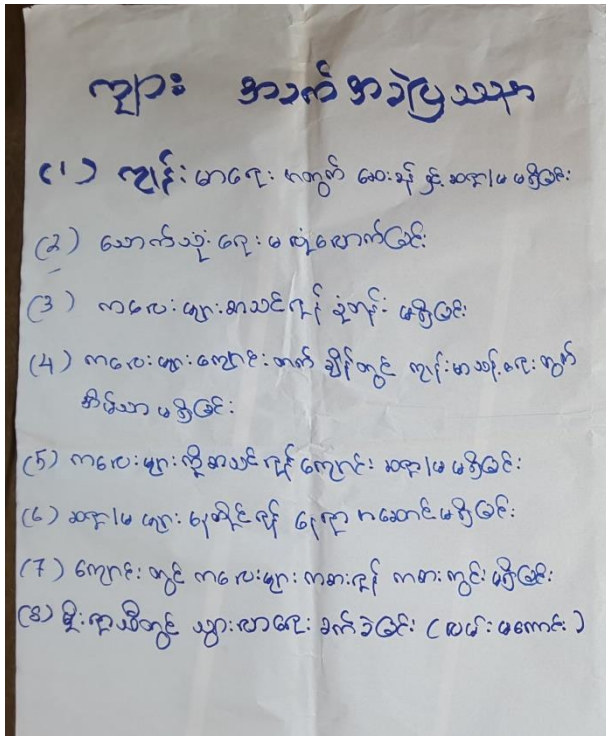 ကျား အခက်အခဲပြဿနာ
(၁) ကျန်းမာရေးအတွက် ဆေးခန်းနှင့် ဆရာ/မ မရှိခြင်း
(2) သောက်သုံးရေ မလုံလောက်ခြင်း
(3) ကလေးများစာသင်ရန် ခုံတန်း မရှိခြင်း
(4) ကလေးများကျောင်းတက်ချိန်တွင် ကျန်းမာသန့်ရှင်းရေးအတွက်
အိမ်သာ မရှိခြင်း
(5) ကလေးများကိုစာသင်ရန် ကျောင်းဆရာ/မ မရှိခြင်း
(6) ဆရာ/မ များ နေထိုင်ရန် နေရာ အဆောင်မရှိခြင်း
(7) ကျောင်းတွင် ကလေးများ ကစားရန် ကစားကွင်း မရှိခြင်း
(8) မိုးရာသီတွင် သွားလာရေး ခက်ခဲခြင်း (လမ်းမကောင်း)